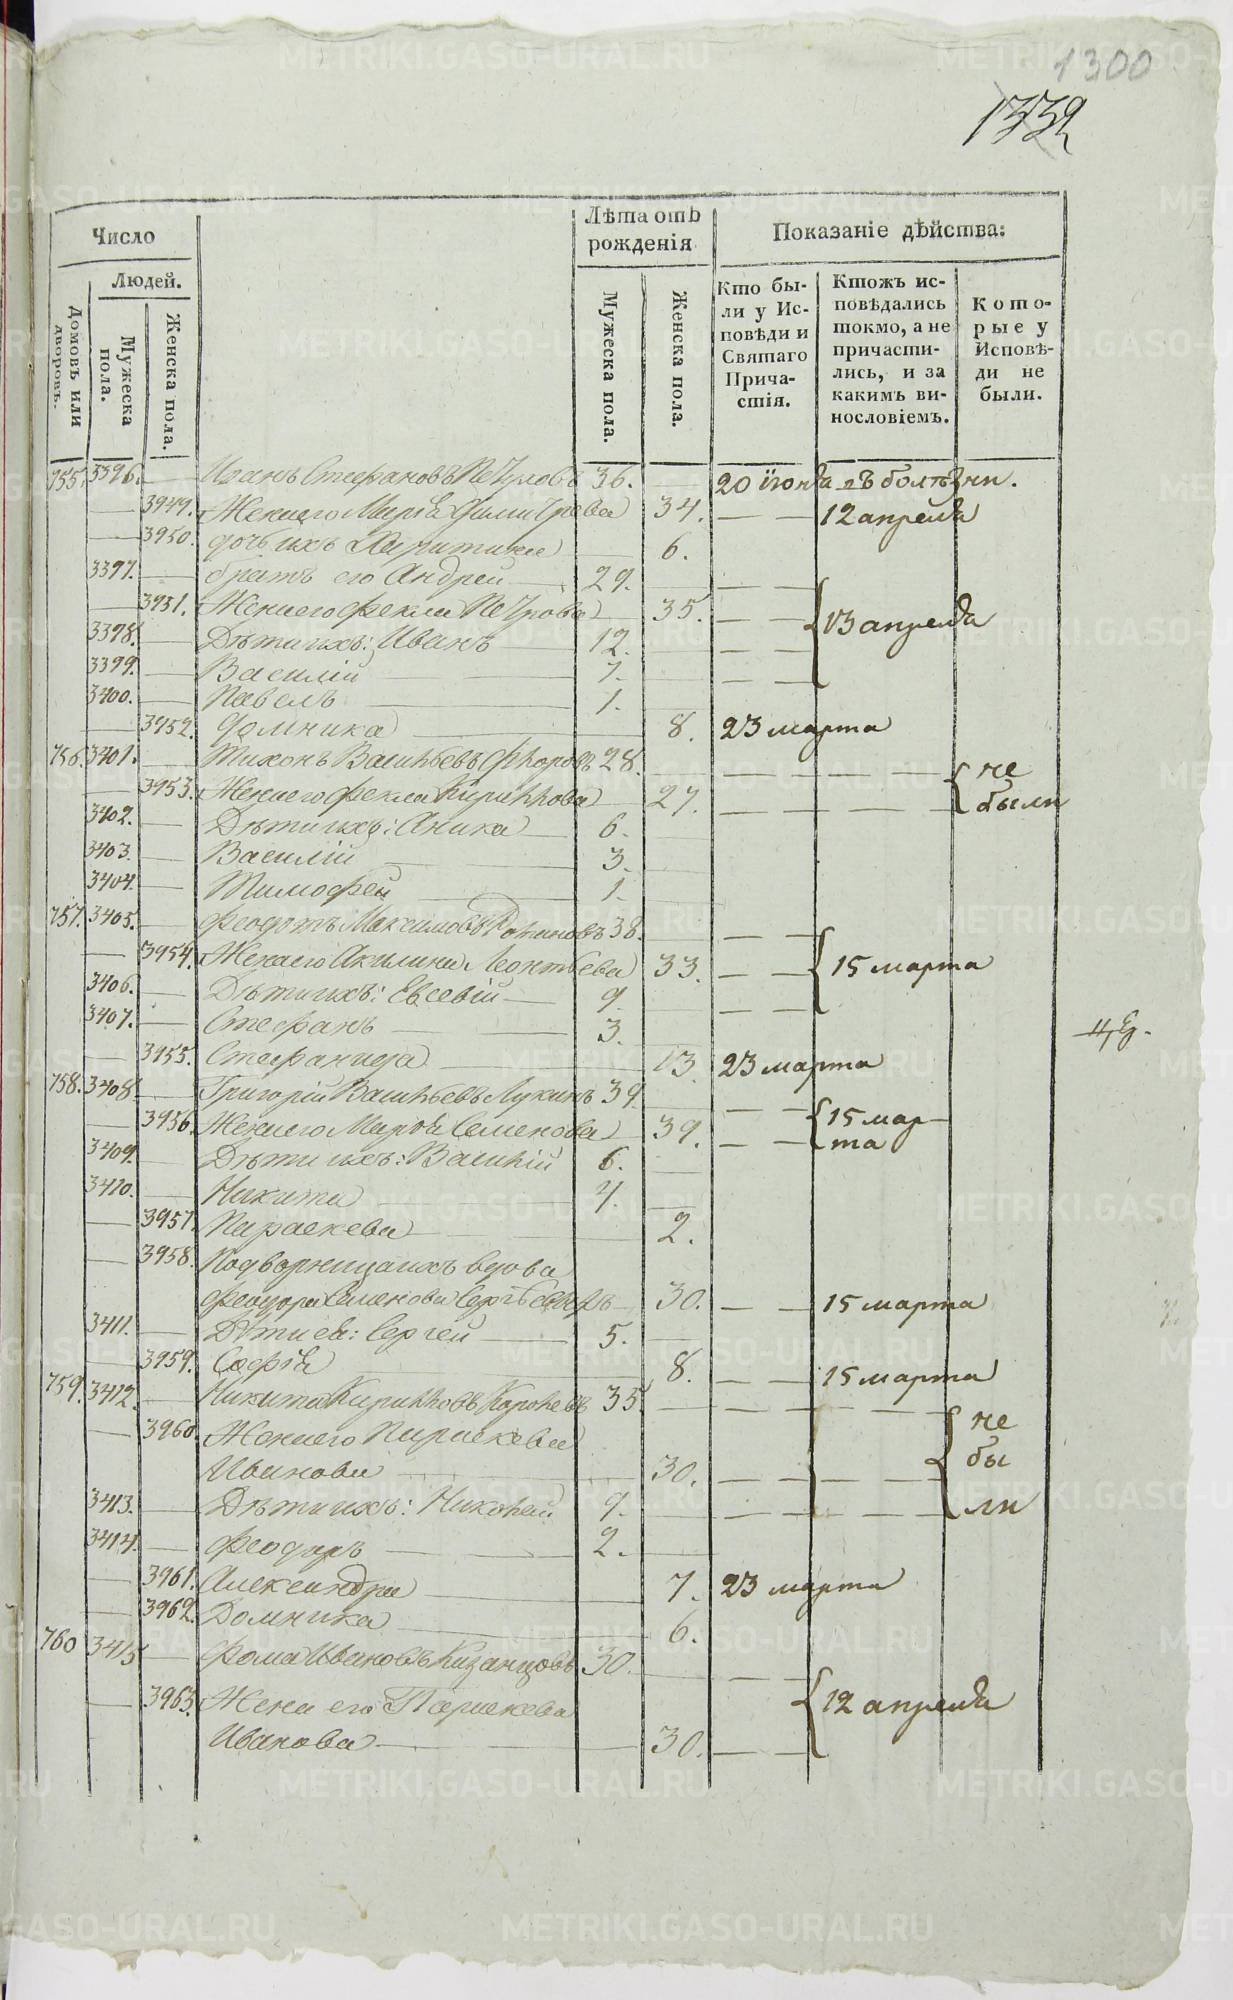 1300
1332
Число
Людей.
Домовъ или дворовъ.
Мужеска пола.
Женска пола.
Лѣта отъ
рожденія
Мужеска пола.
Женска пола.
Показаніе дѣйства:
Кто бы-
ли у Ис-
повѣди и
Святаго
Прича-
стія.
Ктожъ ис-
повѣдались
токмо, а не
причасти-
лись, и за
какимъ ви-
нословіемъ.
Кото-
рые у
Исповѣ-
ди не
были.
755. 3396. Иванъ Стефановъ Петуховъ 36. 20 Іюня въ болѣзни.
3949. Жена его Марѳа Димитріева 34. 12 апрѣля
3950. дочь ихъ Харитина 6.
3397. братъ его Андрей 29.
3951. Жена его Фекла Петрова 35. 13 апрѣля
3398. Дѣти ихъ: Иванъ 12.
3399. Василій 7.
3400. Павелъ 1.
3952. Домника 8. 23 марта
756. 3401. Тихонъ Васильевъ Фроловъ 28. не
3953. Жена его Фекла Кириллова 27. были
3402. Дѣти ихъ: Аника 6.
3403. Василій 3.
3404. Тимофей 1.
757. 3405. Феодотъ Максимовъ 38.
3954. Жена его Акилина Леонтьева 33. 15 марта
3406. Дѣти ихъ: Евсевій 9.
3407. Стефанъ 3.
3955. Стефанида 13. 23 марта
758. 3408. Григорій Васильевъ Лукинъ 39.
3956. Жена его Марѳа Семенова 39. 15 мар-
та
3409. Дѣти ихъ: Василій 6.
3410. Никита 4.
3957. Параскева 2.
3958. Подворница ихъ вдова
Феодора Семенова 30. 15 марта
3411. Дѣти ея: Сергей 5.
3959. Софія 8. 15 марта
759. 3412. Никита Кирилловъ Королевъ 35. не
3960. Жена его Параскева бы
Иванова 30.
3413. Дѣти ихъ: Николай 9. ли
3414. Феодоръ 2.
3961. Александра 7. 23 марта
3962. Домника 6.
760 3415 Фома Ивановъ Казанцовъ 30.
3963. Жена его Параскева 12 апрѣля
Иванова 30.
METRIKI.GASO-URAL.RU